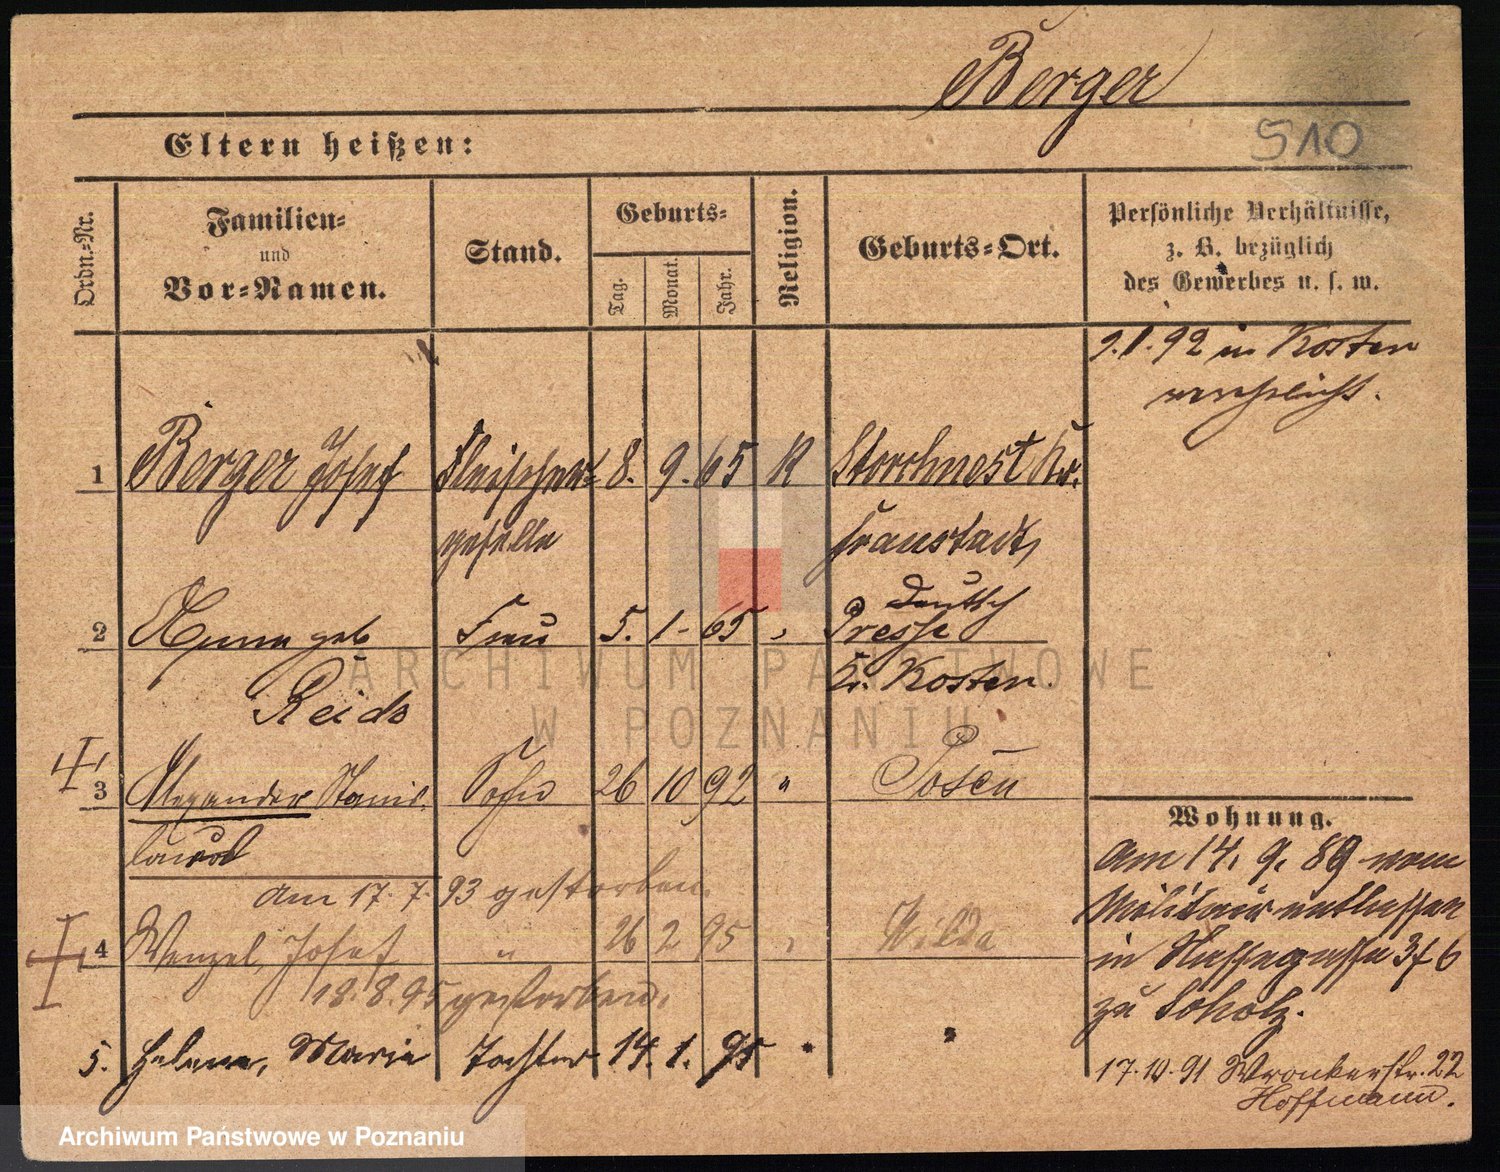 Berger
510
Eltern heißen:
Ordn.=Nr.
Familien=
und
Vor=Namen.
Stand.
Geburts=
Tag.
Monat.
Jahr.
Religion.
Geburts=Ort.
Persönliche Verhältnisse,
z. B. bezüglich
des Gewerbes u. s. w.
9.1.92 in Kosten
verehelicht.
1 Berger Josef Fleischer= 8. 9. 65 K Storchnest Kr.
geselle Fraustadt
2 geb Frau 5. 1 - 65 " Deutsch
Presse
Reids Kr. Kosten.
3 Alexander Stanis- Sohn 26 10 92 " Posen
laus
am 17.7.93 gestorben.
4 Wenzel, Josef " 26 2 95 " Wilda
18.8.95 gestorben.
5. Helene, Marie Tochter 14. 1. 95 " "
Wohnung.
Am 14. 9. 89 vom
Militair entlassen
in 3 f 6
zu Scholz.
17.10.91 Wronkerstr. 22
Hoffmann.
ARCHIWUM PAŃSTWOWE
W POZNANIU
Archiwum Państwowe w Poznaniu